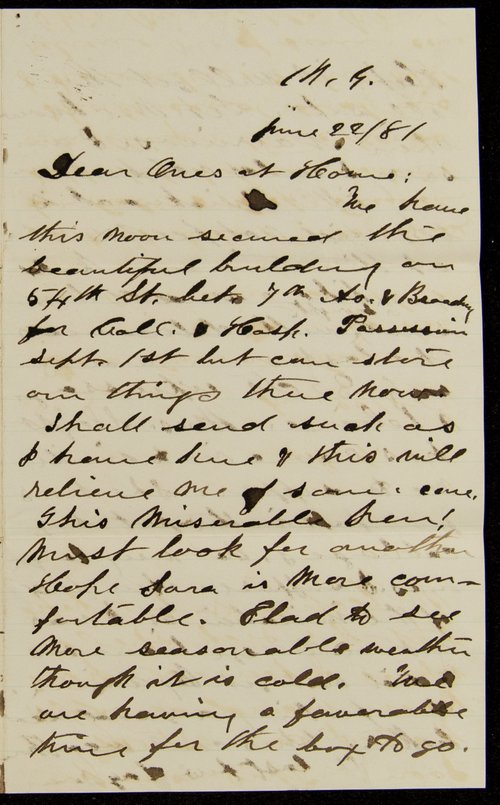 N. Y.
June 22/81
Dear Ones at Home:
We have
this noon secured the
beautiful building on
54th St. bet. 7th Av. & Broadwy
for Coll. & Hosp. Possession
Sept. 1st but can store
our things there now.
Shall send such as
I have here & this will
relieve me of some care.
This miserable pen!
Must look for another
Hope Sara is more com-
fortable. Glad to see
more seasonable weather
though it is cold. We
are having a favorable
time for the box to go.